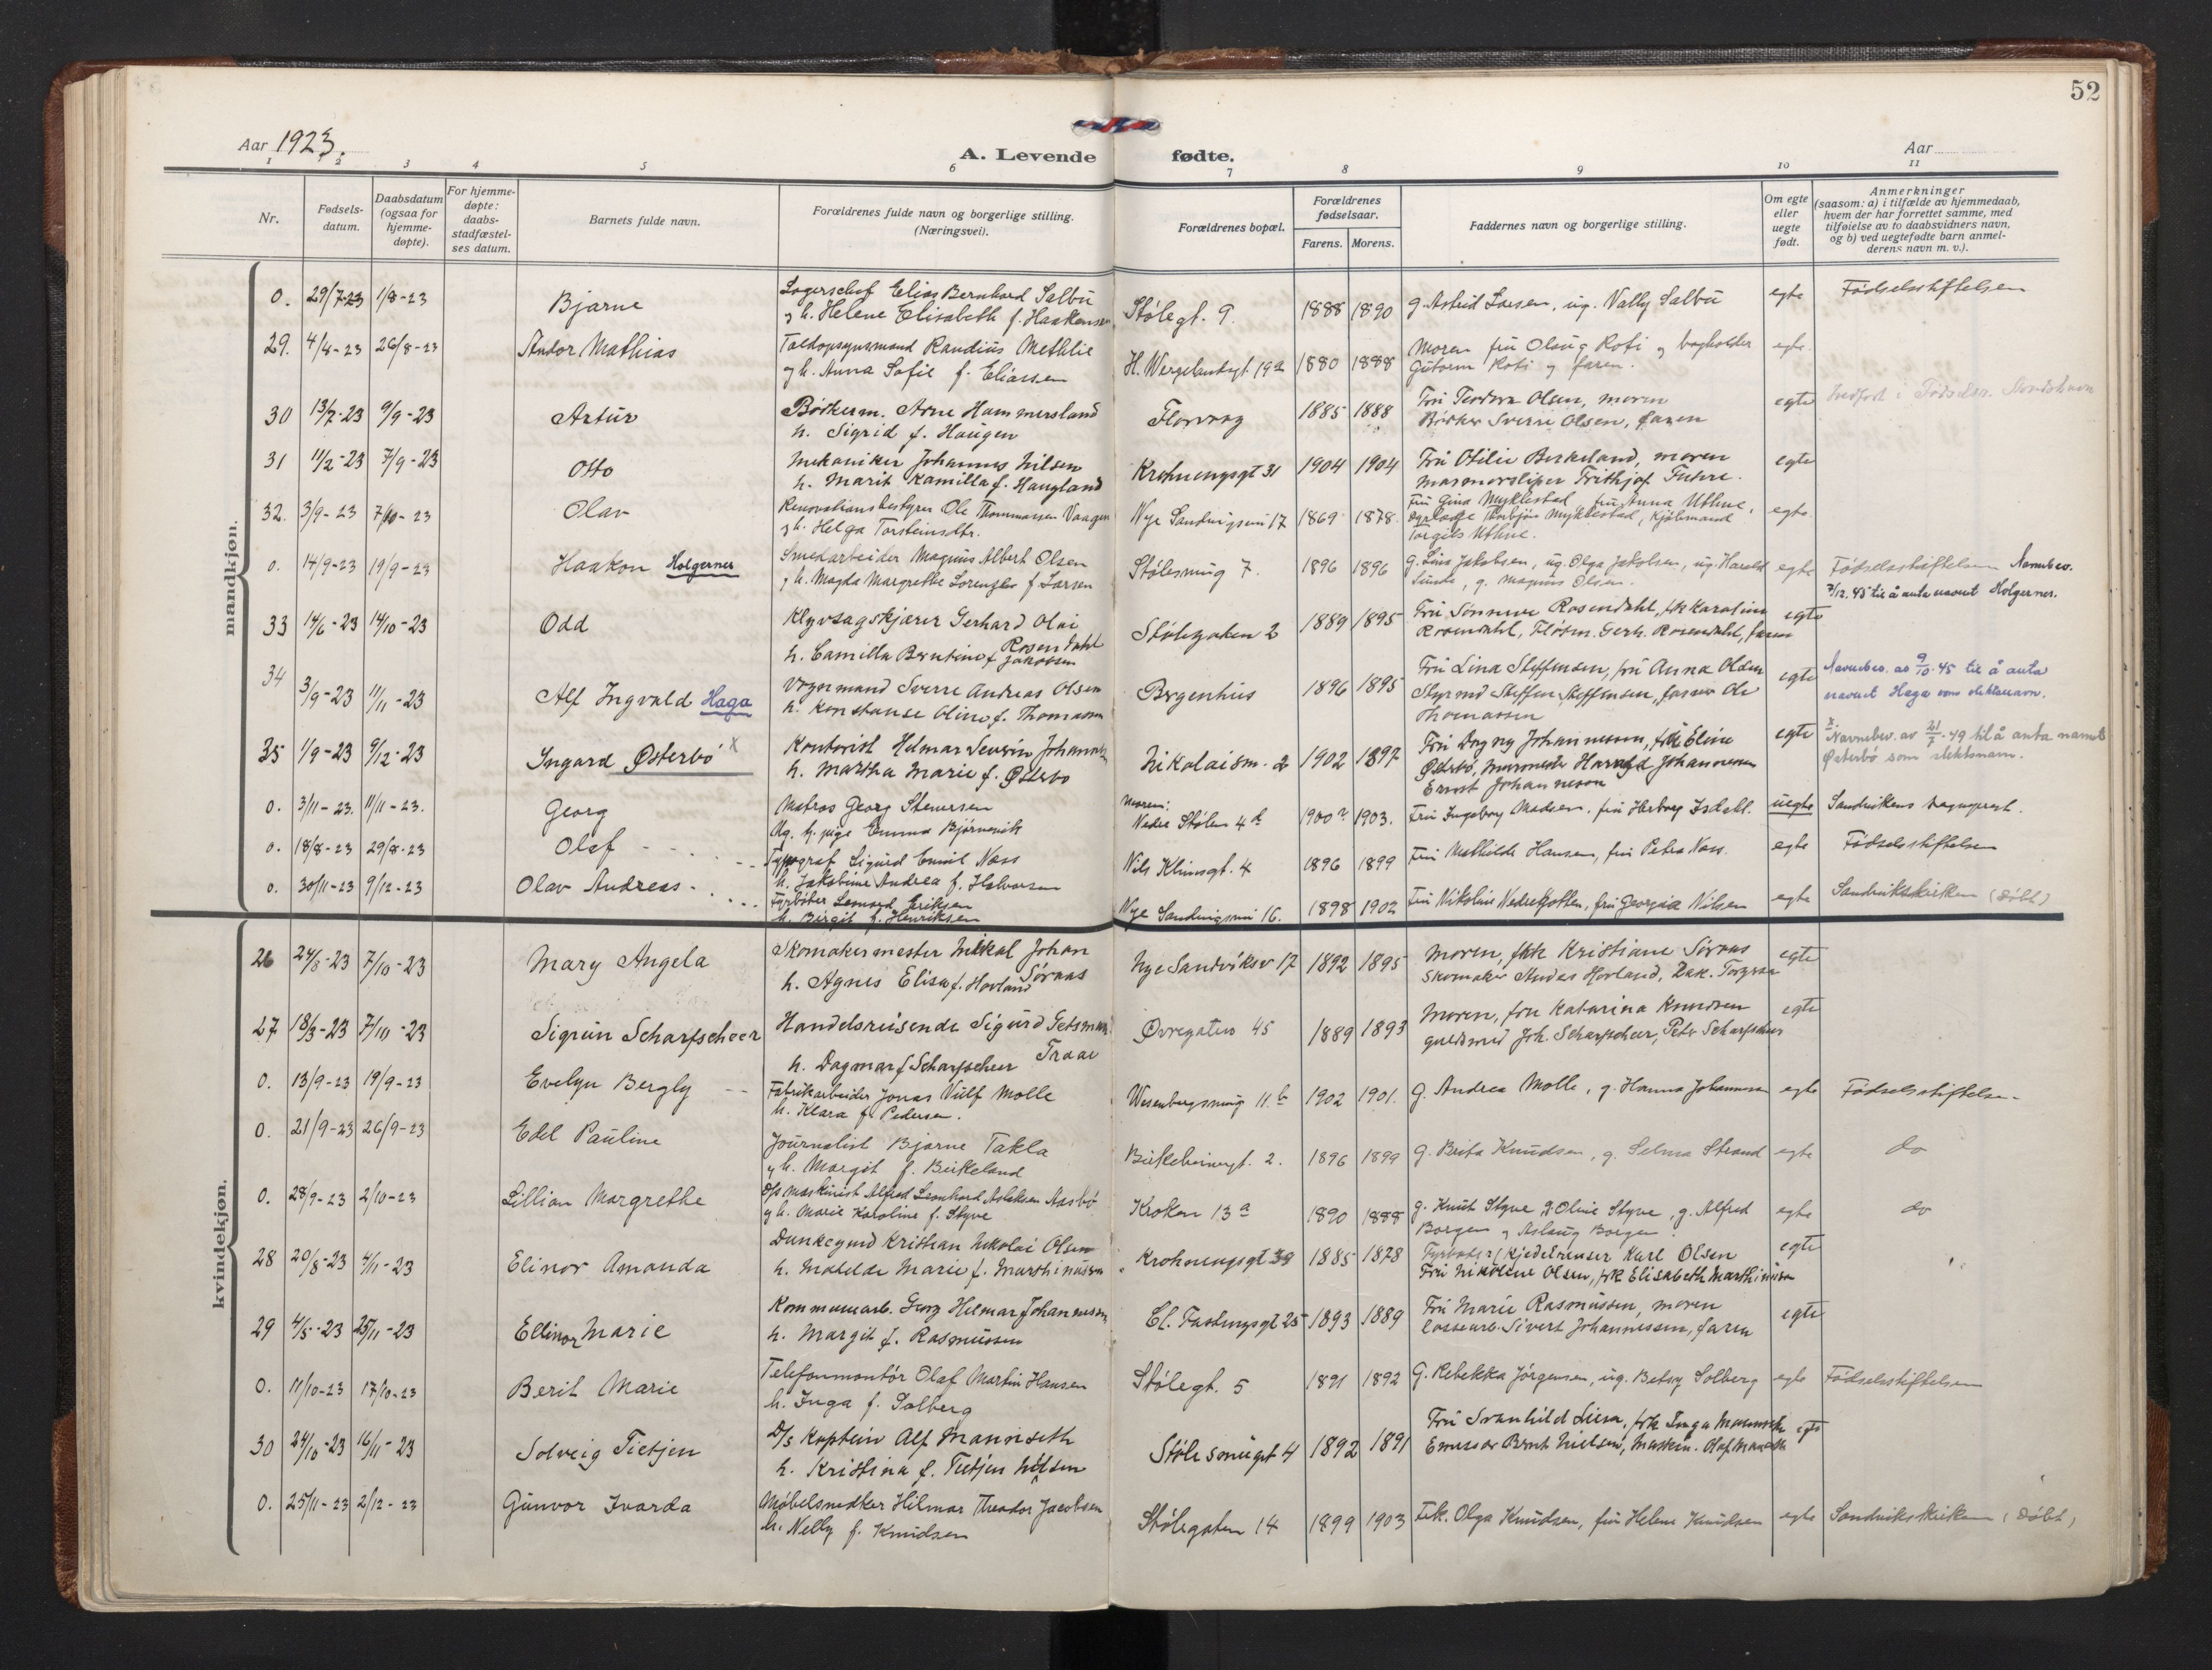 52
Aar 1923.
A. Levende fødte.
Aar
1 2 3 4 5 6 7 8 9 10 11
Nr.
Fødsels-
datum.
Daabsdatum
(ogsaa for
hjemme-
døpte).
For hjemme-
døpte:
daabs-
stadfæstel-
ses datum.
Barnets fulde navn.
Forældrenes fulde navn og borgerlige stilling.
(Næringsvei).
Forældrenes bopæl.
Forældrenes
fødselsaar.
Farens. Morens.
Faddernes navn og borgerlige stilling.
Om egte
eller
uegte
født.
Anmerkninger
(saasom: a) i tilfælde av hjemmedaab,
hvem der har forrettet samme, med
tilføielse av to daabsvidners navn,
og b) ved uegtefødte barn anmel-
derens navn m. v.).
mandkjøn.
0. 29/7-23 1/8-23 Bjarne
Lagerchef Elias Bernhard Salbu
og h. Helene Elisabeth f. Haakensen
Stølegt. 9. 1888 1890
g. Astrid Larsen, ug. Vally Salbu
egte Fødselsstiftelsen
29. 4/4-23 26/8-23 Andor Mathias
Toldopsynsmand Randius Methlie
og h. Anna Sofie f. Eliassen
H. Wergelandsgt 19a 1880 1888
Moren fru Olaug Roti og bogholder
Gutorm Roti og faren.
egte.
30 13/7-23 9/9-23 Artur
Bøkkerm. Arne Hammersland
h. Sigrid f. Haugen
Florvaag 1885 1888
Fru Teodora Olsen, moren
Bøkker Sverre Olsen, faren
egte
31 11/2-23 7/9-23 Otto
Mekaniker Johannes Nilsen
h. Marit Kamilla f. Haugland
Krohnengsgt 31 1904 1904
Fru Otilie Birkeland, moren
Marmorsliper Frithjof
egte
32. 3/9-23 7/10-23 Olav
Renovationsbestyrer Ole Thommassen Vaagen
og h. Helga Torsteinsdtr.
Nye Sandvigsvei 17 1869 1878
Fru Gina Myklestad, fru Anna Uthue,
Thorbjørn Myklestad, kjølmand
Torgils Uthue.
egte
0. 14/9-23 19/9-23 Haakon Holgernes
Smedarbeider Magnus Albert Olsen
og h. Magda Margrethe Lorentze f. Larsen
Stølesmug 7. 1896 1896
g. Lina Jakobsen, ug. Olga Jakobsen, ug. Harald
Lunde, g. Magnus Olsen.
egte Fødselsstiftelsen Navnbev.
/12.45 til å anta navnet Holgernes.
33 14/6-23 14/10-23 Odd
Klyvsagskjærer Gerhard Olai
Rosendahl
h. Camilla Berntine f. Jakobsen
Stølegaten 2 1889 1895
Fru Sønneve Rosendahl, frk Karoline
Rosendahl, Fløtm. Gerh. Rosendahl, faren
egte
34 3/9-23 11/11-23 Alf Ingvald Haga
Vognmand Sverre Andreas Olsen
h. Konstanse Oline f. Thomassen
Bergenhus 1896 1895
Fru Lina Steffensen, fru Anna Olsen
Styrmd Steffen Steffensen, Ole
Thomassen
egte Navnebev. av 9/10.45 til å anta
navnet Haga som slektsnavn.
35 1/9-23 9/12-23 Ingard Østerbö x
Kontorist Helmar Severin Johannesen
h. Martha Marie f. Østerbö
Nikolaism. 2 1902 1897
Fru Dagny Johannessen, frk Eline
Østerbö, murmester Harald Johannessen
Ernst Johannessen
egte x Navnebev. av 21/7-49 til å anta navnet
Østerbö som slektsnavn.
0. 3/11-23. 11/11-23. Georg
Matros Georg Stenersen
Ug. tj. pige Emma Bjørnevik
Moren:
Nedre Stølen 4d 1900? 1903.
Fru Ingeborg Madsen, fru Herborg Isdahl.
uegte Sandvikens sogneprest.
0. 18/8-23 29/8-23 Olaf
Typograf Sigurd Emil Næss
h. Jakobine Andrea f. Halvorsen
Nils Klimsgt. 4 1896 1899
Fru Mathilde Hansen, fru Petra Næss.
egte Fødselsstiftelsen
0. 30/11-23 9/12-23 Olav Andreas
Fyrbøter Lenard Eriksen
h. Birgit f. Henriksen
Nye Sandvigsvei 16. 1898 1902
Fru Nikoline Nedregotten, fru Georgia Nilsen
egte Sandvikskirken (døbt)
kvindekjøn.
26 24/8-23 7/10-23 Mary Angela
Skomakermester Mikal Johan
Søraas
h. Agnes Elisa f. Hovland
Nye Sandviksv 17 1892 1895
Moren, frk Kristiane Søraas
Skomaker Anders Hovland, Zak.
egte
27 18/3-23 7/10-23 Sigrun Scharfscheer
Handelsreisende Sigurd Getsman
Traae
h. Dagmar f Scharfscheer
Øvregaten 45 1889 1893
Moren, fru Katarina Knudsen
guldsmed Joh. Scharfscheer, Peter Scharfscheer
egte
0. 13/9-23 19/9-23 Evelyn Bergly
Fabrikarbeider Jonas Wulf Molle
h. Klara f. Pedersen.
Wesenbergsmug 11.b 1902 1901.
g. Andrea Molle, g. Hanna Johannessen
egte Fødselsstiftelsen
0. 21/9-23 26/9-23 Edel Pauline
Journalist Bjarne Takla
og h. Margit f. Birkeland
Birkebeinergt. 2. 1896 1899
g. Brita Knudsen, g. Selma Strand
egte do
0. 28/9-23 2/10-23 Lillian Margrethe
D/s maskinist Alfred Leonhard Aslaksen Aasbø
og h. Marie Karoline f. Styve
Kroken 13a 1890 1888
g. Knut Styve, g. Oline Styve, g. Alfred
Borgen og Aslaug Borgen.
egte do
28 20/8-23 4/11-23 Elinor Amanda
Dunkegmd Kristian Nikolai Olsen
h. Matelde Marie f. Marthinussen
Krohnengsgt 39 1885 1878
Fyrbøter, kjedelrenser Karl Olsen
Fru Nikolene Olsen, frk Elisabeth Marthinussen
egte
29 4/5-23 25/11-23 Ellinor Marie
Kommunearb. Georg Helmar Johannesson
h. Margit f. Rasmussen
Cl. Fastingsgt 25 1893 1889
Fru Marie Rasmussen, moren
Lossearb. Sivert Johannessen, faren
egte
0. 11/10-23 17/10-23 Berit Marie
Telefonmontör Olaf Martin Hansen
h. Inga f. Solberg
Stølegt. 5 1891 1892
G. Rebekka Jörgensen, ug. Betsy Solberg
egte Fødselsstiftelsen
30 24/10-23 16/11-23 Solveig Tietjen
D/s Kaptein Alf Mannseth
h. Kristina f. Tietjen Nilsen
Stølesmuget 4 1892 1891
Fru Svanhild Liisa, frk Inga Mannseth
Emissær Bernt Nielsen, Maskin. Olaf Mannseth
egte
0. 25/11-23 2/12-23 Gunvor Ivarda
Møbelsnedker Hilmar Theodor Jacobsen
h. Nelly f. Knudsen
Stølegaten 14 1899 1903
Frk. Olga Knudsen, fru Helene Knudsen
egte Sandvikskirken (døbt)